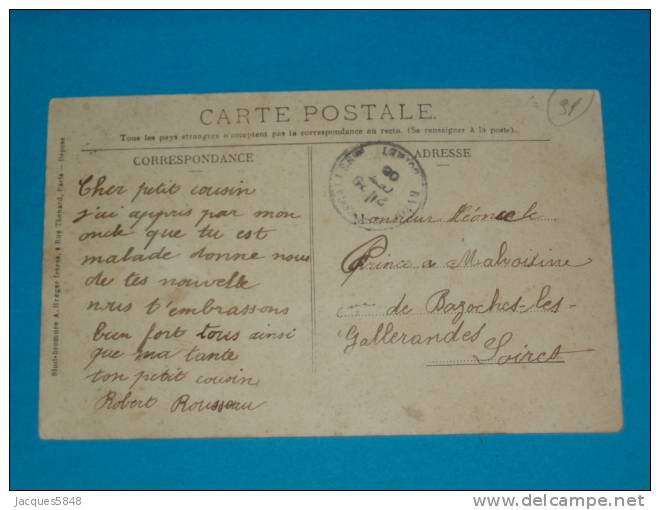 CARTE POSTALE.
Tous les pays étrangers n'acceptent pas la correspondance au recto. (Se renseigner à la poste).
CORRESPONDANCE
Cher petit cousin
j'ai appris par mon
oncle que tu est
malade donne nous
de tes nouvelle
nous t'embrassons
bien fort tous ainsi
que ma tante
ton petit cousin
Robert Rousseau
ADRESSE
Monsieur Léonce
Prince a Malvoisine
de Bazoches-les-
Gallerandes
Loiret
91
LOIRET
Jacques5848
delcampe.net